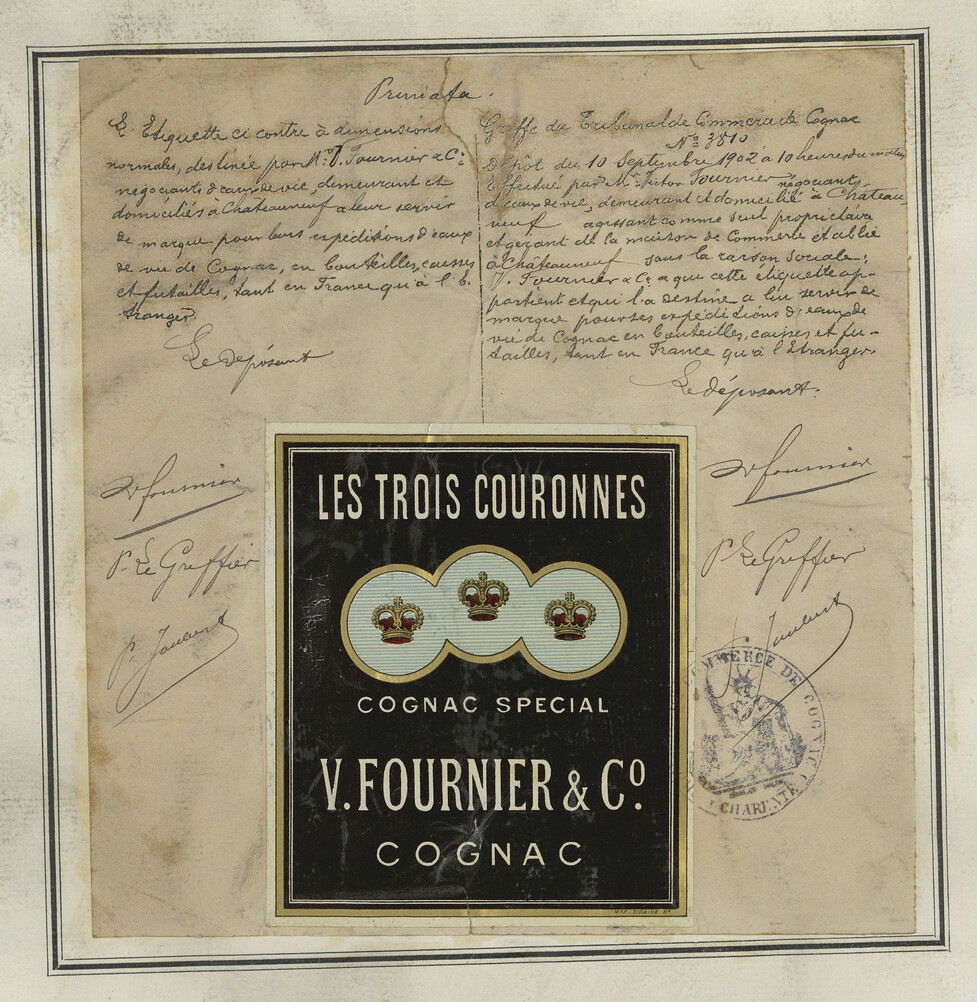 Primata.
L'Etiquette ci contre à dimensions
normales, destinée par Mr. V. Fournier & Cie
négociants d'eaux de vie, demeurant et
domiciliés à Châteauneuf a leur servir
de marque pour leurs expéditions d'eaux
de vie de Cognac, en bouteilles, caisses
et futailles, tant en France qu'à l'E-
tranger.
Le déposant
V Fournier
Pr Le Greffier
P. Jaubert
Greffe du Tribunal de Commerce de Cognac
No 3510
Dépôt du 10 Septembre 1902 à 10 heures du matin
Effectué par Mr Victor Fournier négociant
d'eaux de vie, demeurant et domicilié à Château-
neuf agissant comme seul propriétaire
et gérant de la maison de Commerce établie
à Châteauneuf sous la raison sociale:
V. Fournier & Cie a qui cette étiquette ap-
partient et qui l'a destine a lui servir de
marque pour ses expéditions d'eaux de
vie de Cognac en bouteilles, caisses et fu-
tailles, tant en France qu'à l'Etranger.
Le déposant.
V Fournier
Pr Le Greffier
Jaubert
LES TROIS COURONNES
COGNAC SPECIAL
V. FOURNIER & Co.
COGNAC
COMMERCE DE COGNAC
CHARENTE